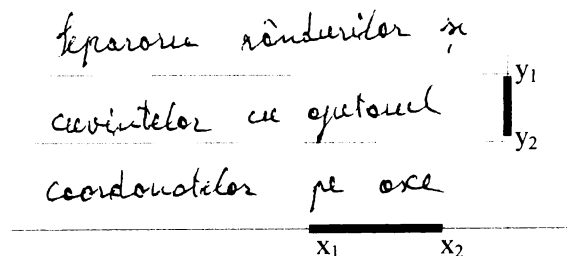 Separarea rândurilor și
y₁
cuvintelor cu ajutorul
y₂
coordonatelor pe axe
x₁ x₂